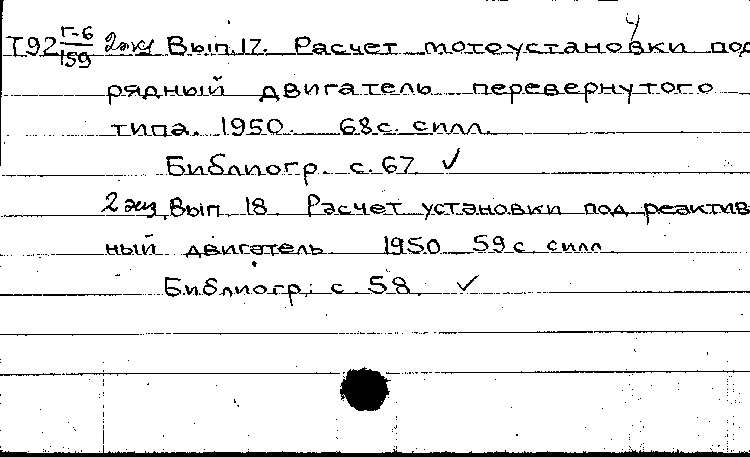 4
Т92 Г-6/159 2 экз Вып. 17. Расчет мотоустановки под
рядный двигатель перевернутого
типа. 1950. 68 с. с илл.
Библиогр. с. 67 ✓
2 экз. Вып 18. Расчет установки под реактив
ный двигатель 1950 59 с. с илл
Библиогр. с 58. ✓